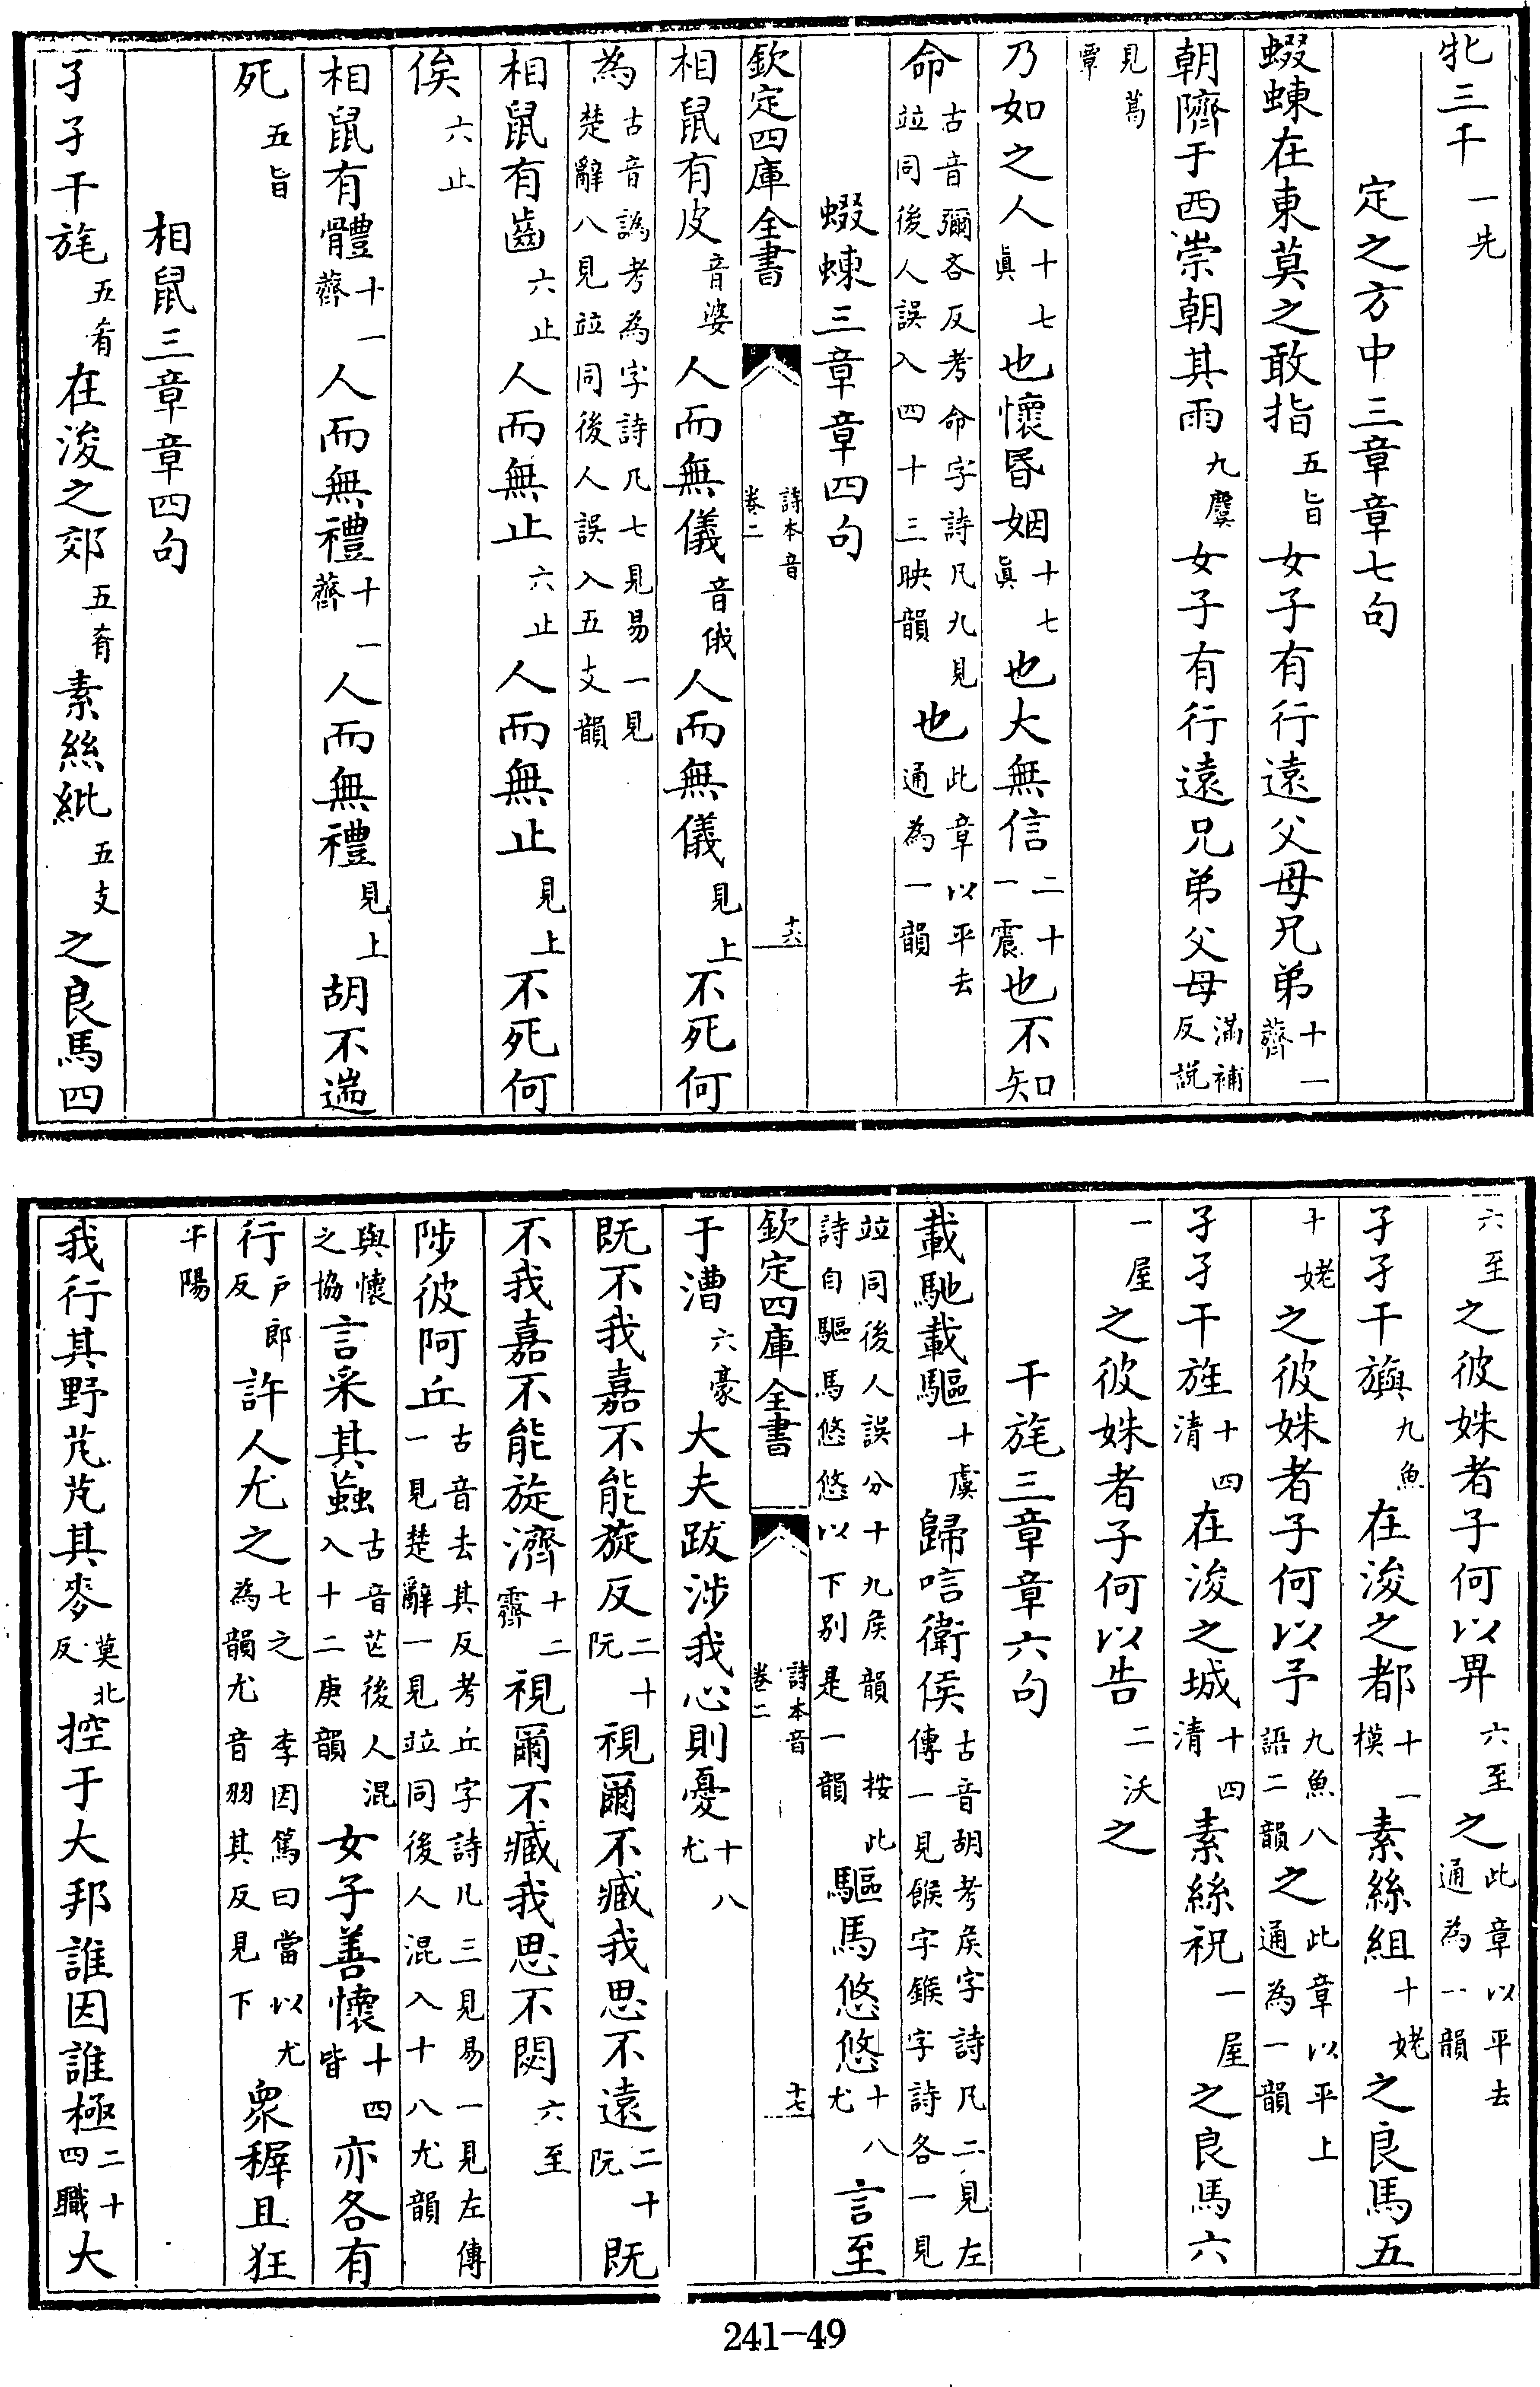 牝三千一先
定之方中三章章七句
蝃蝀在東莫之敢指五旨女子有行遠父母兄弟十一薺
朝隮于西崇朝其雨九麌女子有行遠兄弟父母滿補反説
見葛覃
乃如之人十七眞也懷昏姻十七眞也大無信二十一震也不知
命古音彌吝反考命字詩凡九見竝同後人誤入四十三映韻也此章以平去通為一韻
蝃蝀三章章四句
欽定四庫全書 詩本音卷二 十六
相鼠有皮音婆人而無儀音俄人而無儀見上不死何
為古音譌考為字詩凡七見易一見楚辭八見竝同後人誤入五支韻
相鼠有齒六止人而無止六止人而無止見上不死何
俟六止
相鼠有體十一薺人而無禮十一薺人而無禮見上胡不遄
死五旨
相鼠三章章四句
孑孑干旄五肴在浚之郊五肴素絲紕五支之良馬四
六至之彼姝者子何以畀六至之此章以平去通為一韻
孑孑干旟九魚在浚之都十一模素絲組十姥之良馬五
十姥之彼姝者子何以予九魚八語二韻之此章以平上通為一韻
孑孑干旌十四清在浚之城十四清素絲祝一屋之良馬六
一屋之彼姝者子何以告二沃之
干旄三章章六句
載馳載驅十虞歸唁衛侯古音胡考侯字詩凡二見左傳一見餱字鍭字詩各一見
竝同後人誤分十九侯韻 按此詩自驅馬悠悠以下别是一韻驅馬悠悠十八尤言至
欽定四庫全書 詩本音卷二 十七
于漕六豪大夫跋涉我心則憂十八尤
既不我嘉不能旋反二十阮視爾不臧我思不遠二十阮既
不我嘉不能旋濟十二霽視爾不臧我思不閟六至
陟彼阿丘古音去其反考丘字詩凡三見易一見左傳一見楚辭一見竝同後人混入十八尤韻
與懷之協言采其蝱古音芒後人混入十二庚韻女子善懷十四皆亦各有
行户郎反許人尤之七之 李因篤曰當以尤為韻尤音羽其反見下衆穉且狂
十陽
我行其野芃芃其麥莫北反控于大邦誰因誰極二十四職大
241-49